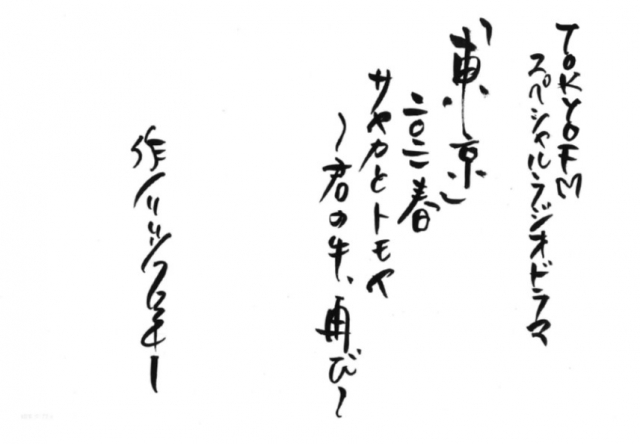 TOKYOFM
スペシャル・ラジオドラマ
「東京」
二〇二一春
サヤカとトモヤ
〜君の牛、再び〜
作/リリーフランキー